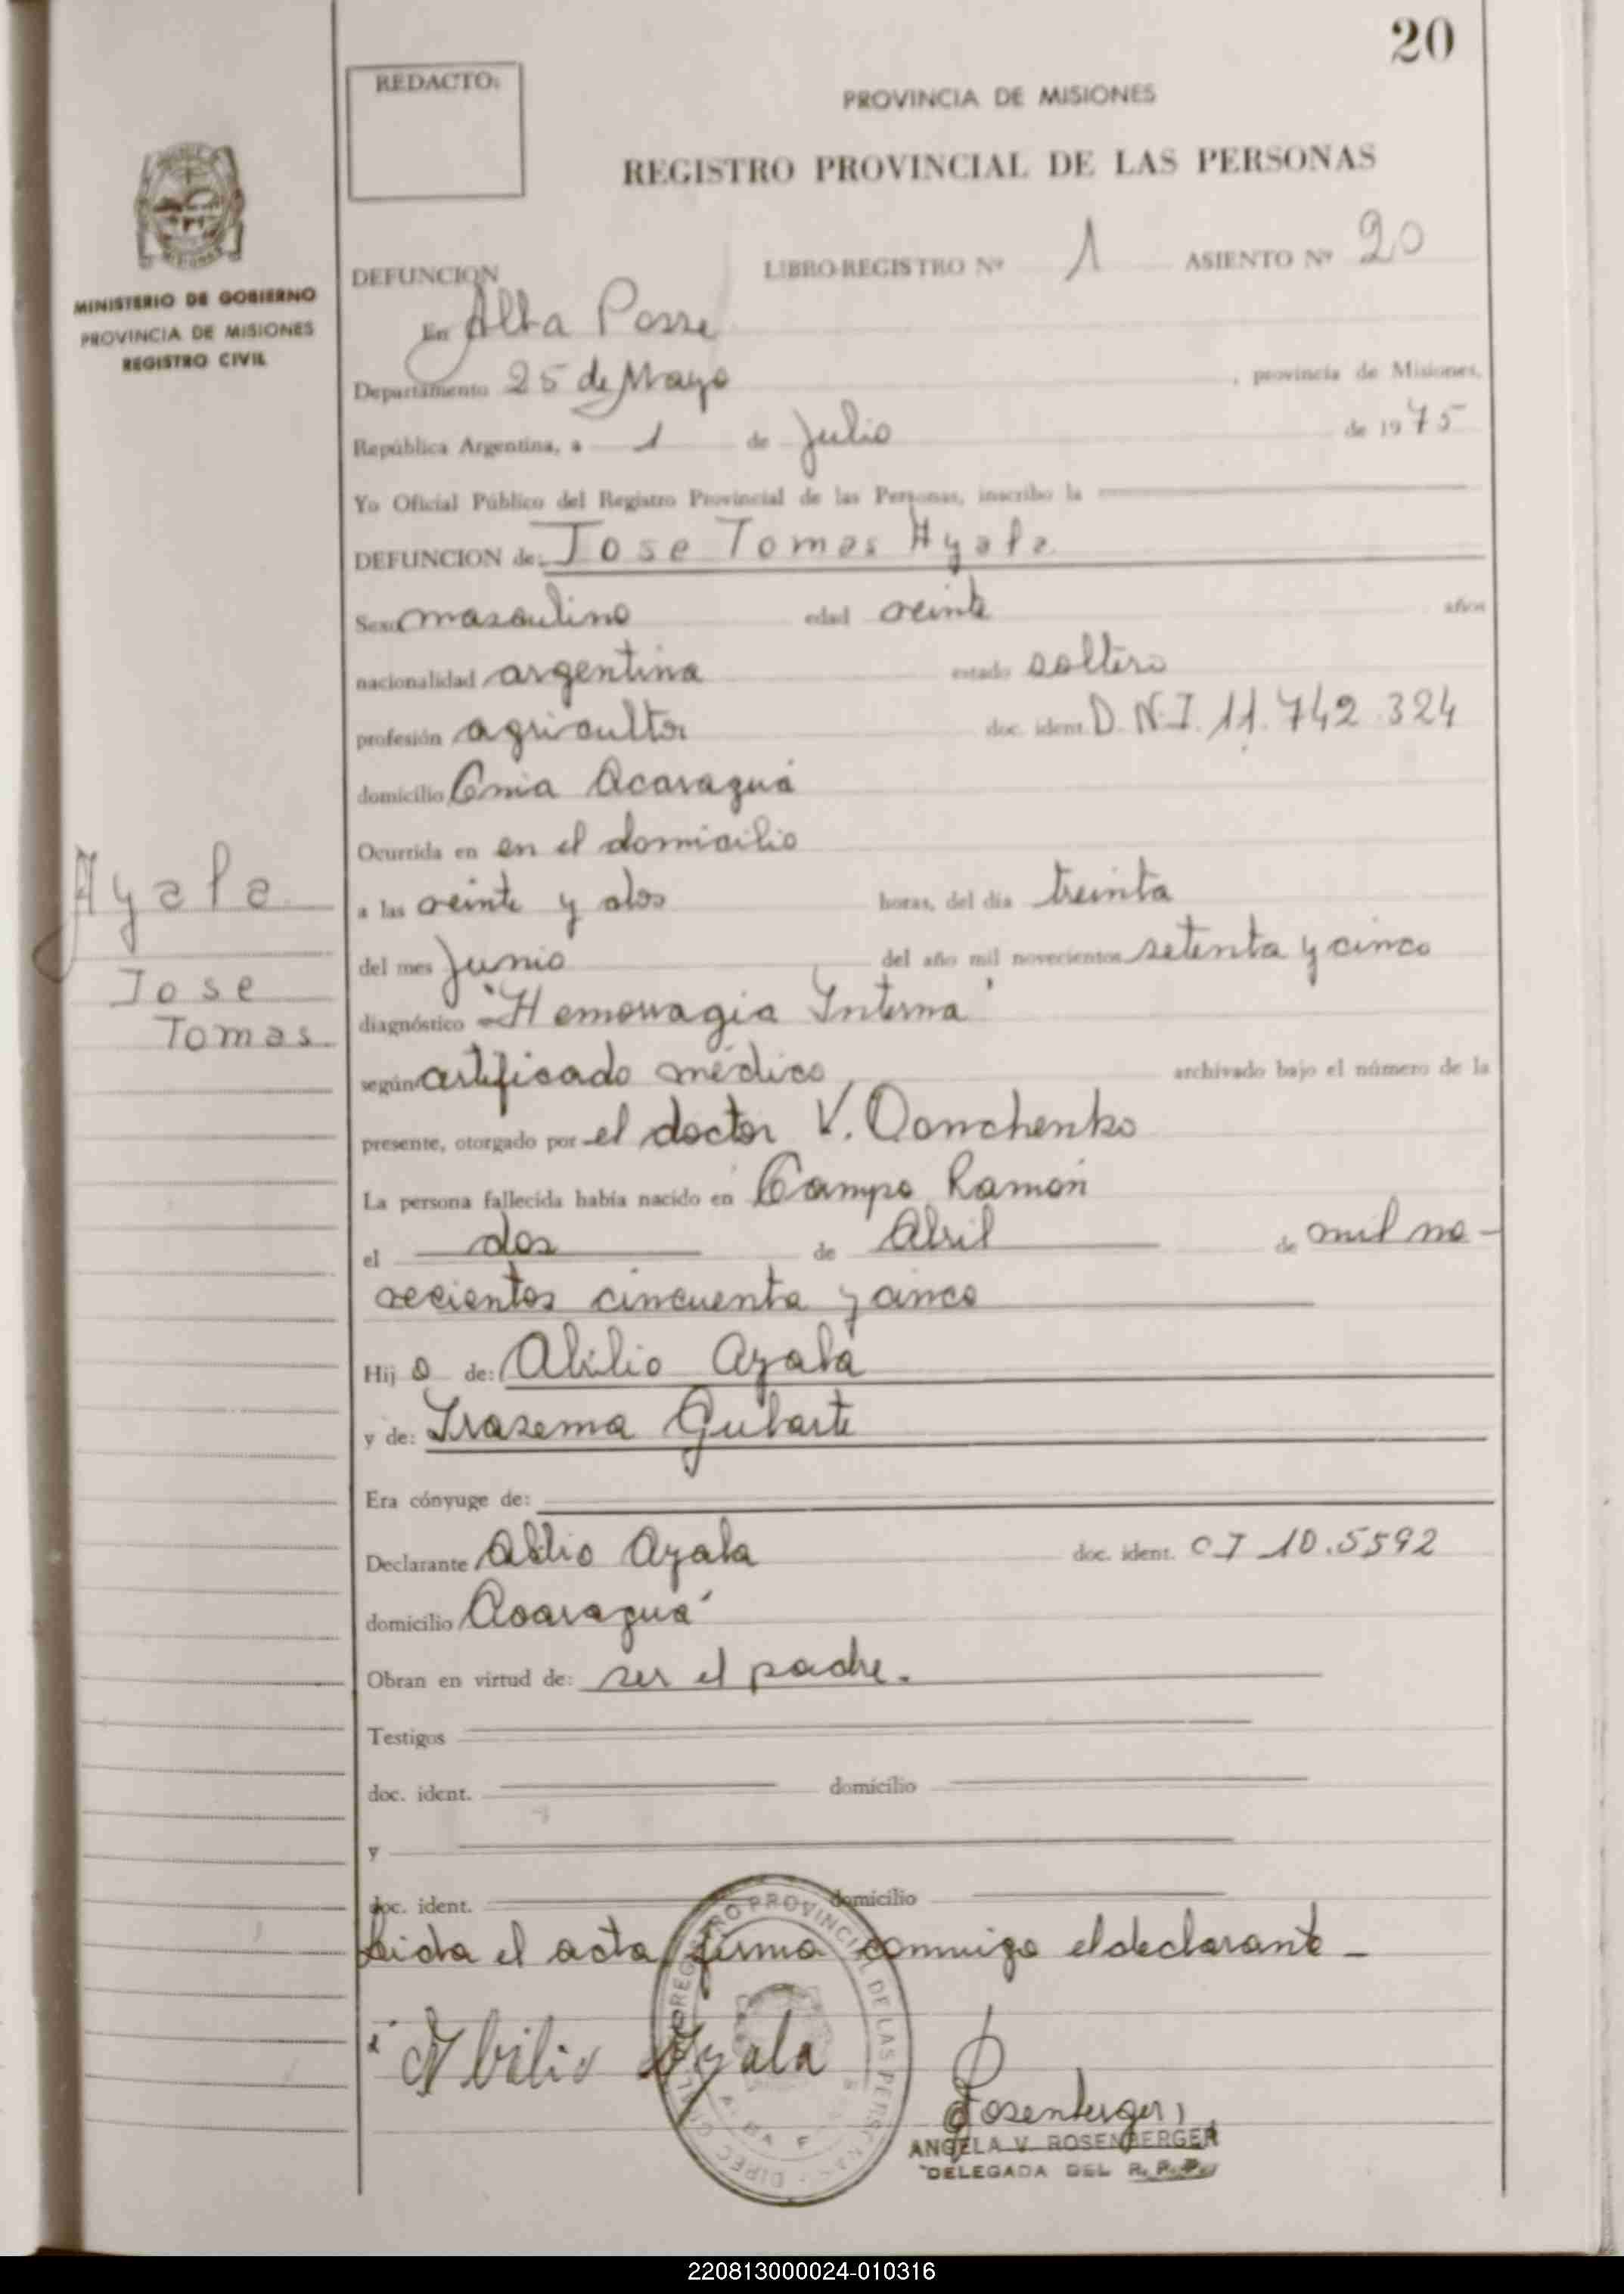 20
REDACTO:
PROVINCIA DE MISIONES
REGISTRO PROVINCIAL DE LAS PERSONAS
MINISTERIO DE GOBIERNO
PROVINCIA DE MISIONES
REGISTRO CIVIL
DEFUNCION LIBRO-REGISTRO Nº 1 ASIENTO Nº 20
En Alba Posse
Departamento 25 de Mayo, provincia de Misiones,
República Argentina, a 1 de Julio de 1975
Yo Oficial Público del Registro Provincial de las Personas, inscribo la
DEFUNCION de: Jose Tomas Ayala
Sexo masculino edad veinte años
nacionalidad argentina estado soltero
profesión agricultor doc. ident. D.N.I. 11.742.324
domicilio Cnia Acaraguá
Ocurrida en en el domicilio
a las veinte y dos horas, del día treinta
del mes Junio del año mil novecientos setenta y cinco
diagnóstico "Hemorragia Interna"
según certificado médico archivado bajo el número de la
presente, otorgado por el doctor V. Oonchenko
La persona fallecida había nacido en Campo Ramón
el dos de Abril de mil no-
vecientos cincuenta y cinco
Hijo de: Abilio Ayala
y de: Irasema Gularte
Era cónyuge de:
Declarante Abilio Ayala doc. ident. C I 10.5592
domicilio Acaraguá
Obran en virtud de: ser el padre.
Testigos
doc. ident. domicilio
y
doc. ident. domicilio
Leida el acta firma conmigo el declarante -
Abilio Ayala
Rosenberger
ANGELA V. ROSENBERGER
DELEGADA DEL R. P. P.
REGISTRO PROVINCIAL DE LAS PERSONAS
Ayala
Jose
Tomas
220813000024-010316